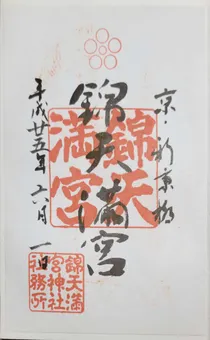 京・新京極
錦天満宮
錦天
満宮
平成廿五年六月一日
錦天満
宮神社
社務所